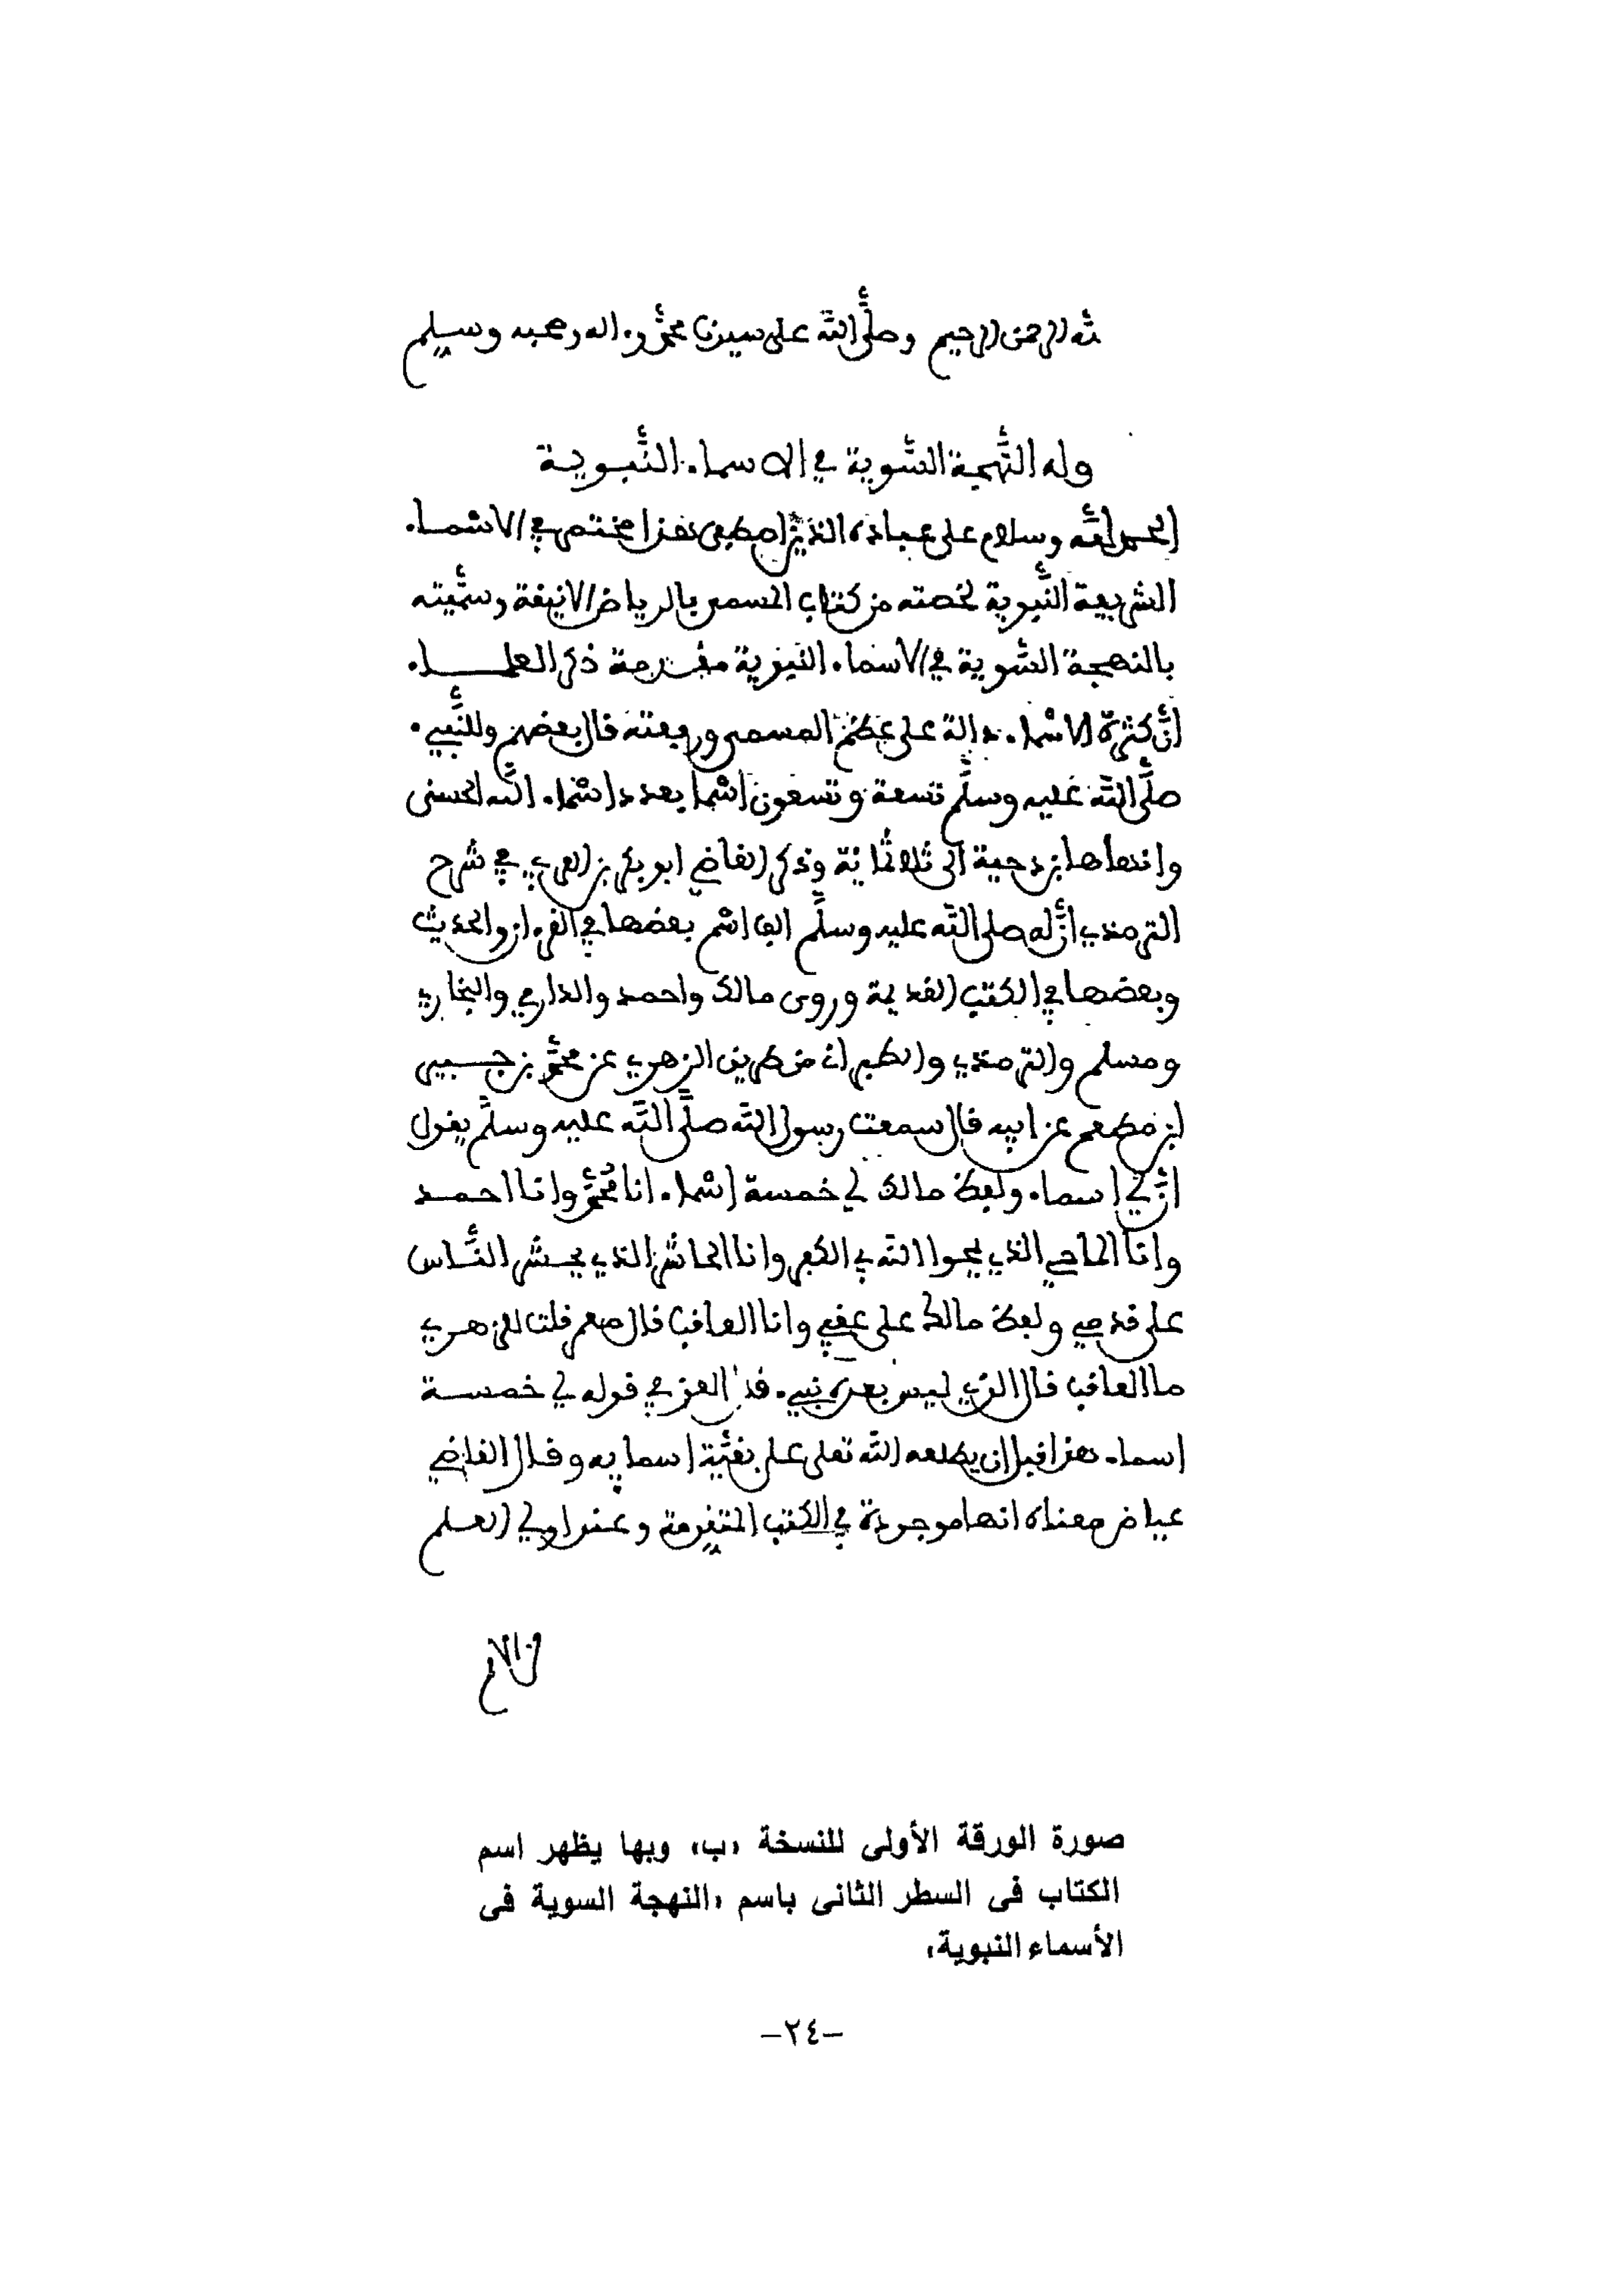 لله الرحمن الرحيم وصلى الله على سيدنا محمد واله وصحبه وسلم
وله النهجة السوية في الاسماء النبوية
الحمد لله وسلام على عباده الذين اصطفى هذا مختصر في الاسماء
الشريفة النبوية لخصته من كتاب المسمى بالرياض الانيقة وسميته
بالنهجة السوية في الاسماء النبوية مقدمة ذكر العلماء
أن كثرة الاسماء دالة على عظم المسمى ورفعته قال بعضهم وللنبيء
صلى الله عليه وسلم تسعة وتسعون اسما بعدد اسماء الله الحسنى
وانهاها ابن دحية الى ثلاثمائة وذكر القاضي ابو بكر بن العربي في شرح
الترمذي أن له صلى الله عليه وسلم الف اسم بعضها في القرءان والحديث
وبعضها في الكتب القديمة وروى مالك واحمد والدارمي والبخاري
ومسلم والترمذي والطبراني من طريق الزهري عن محمد بن جبير
ابن مطعم عن ابيه قال سمعت رسول الله صلى الله عليه وسلم يقول
أن لي اسماء ولفظ مالك لي خمسة اسماء انا محمد وانا احمد
وانا الماحي الذي يمحوا الله بي الكفر وانا الحاشر الذي يحشر الناس
على قدمي ولفظ مالك على عقبي وانا العاقب قال معمر قلت للزهري
ما العاقب قال الذي ليس بعده نبيء قال العزفي قوله لي خمسة
اسماء هذا قبل ان يطلعه الله تعلى على بقية اسمايه وقال القاضي
عياض معناه انها موجودة في الكتب المتقدمة وعند اولي العلم
من الامم
صورة الورقة الأولى للنسخة «ب» وبها يظهر اسم
الكتاب فى السطر الثانى باسم «النهجة السوية فى
الأسماء النبوية»
-٢٤-